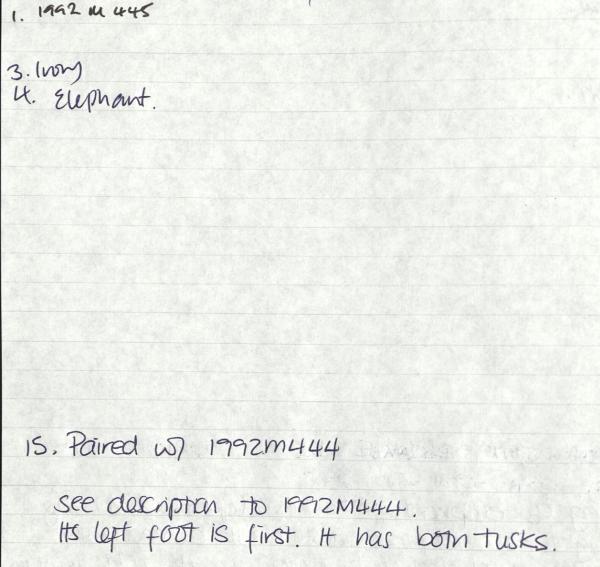 1. 1992 M 445
3. Ivory
4. Elephant.
15. Paired w/ 1992M444
see description to 1992M444.
Its left foot is first. It has both tusks.